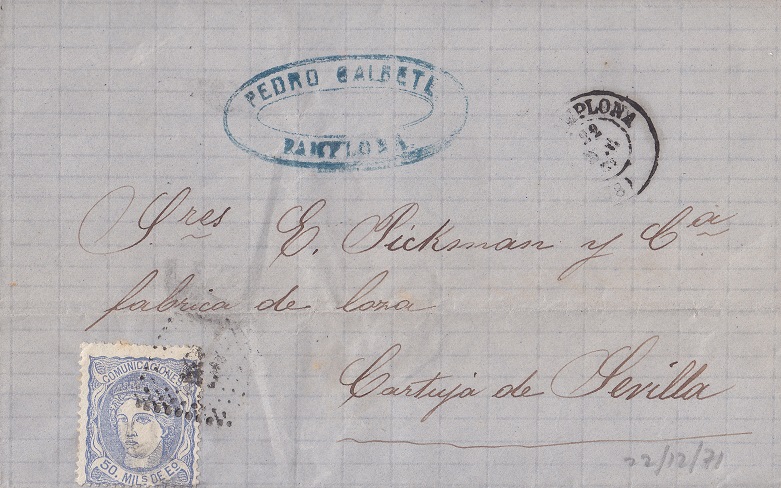 PEDRO GALBETE
PAMPLONA.
PLONA
22
Sres E. Pickman y Ca
fabrica de loza
Cartuja de Sevilla
COMUNICACIONES
50. MILS DE Eo
22/12/71